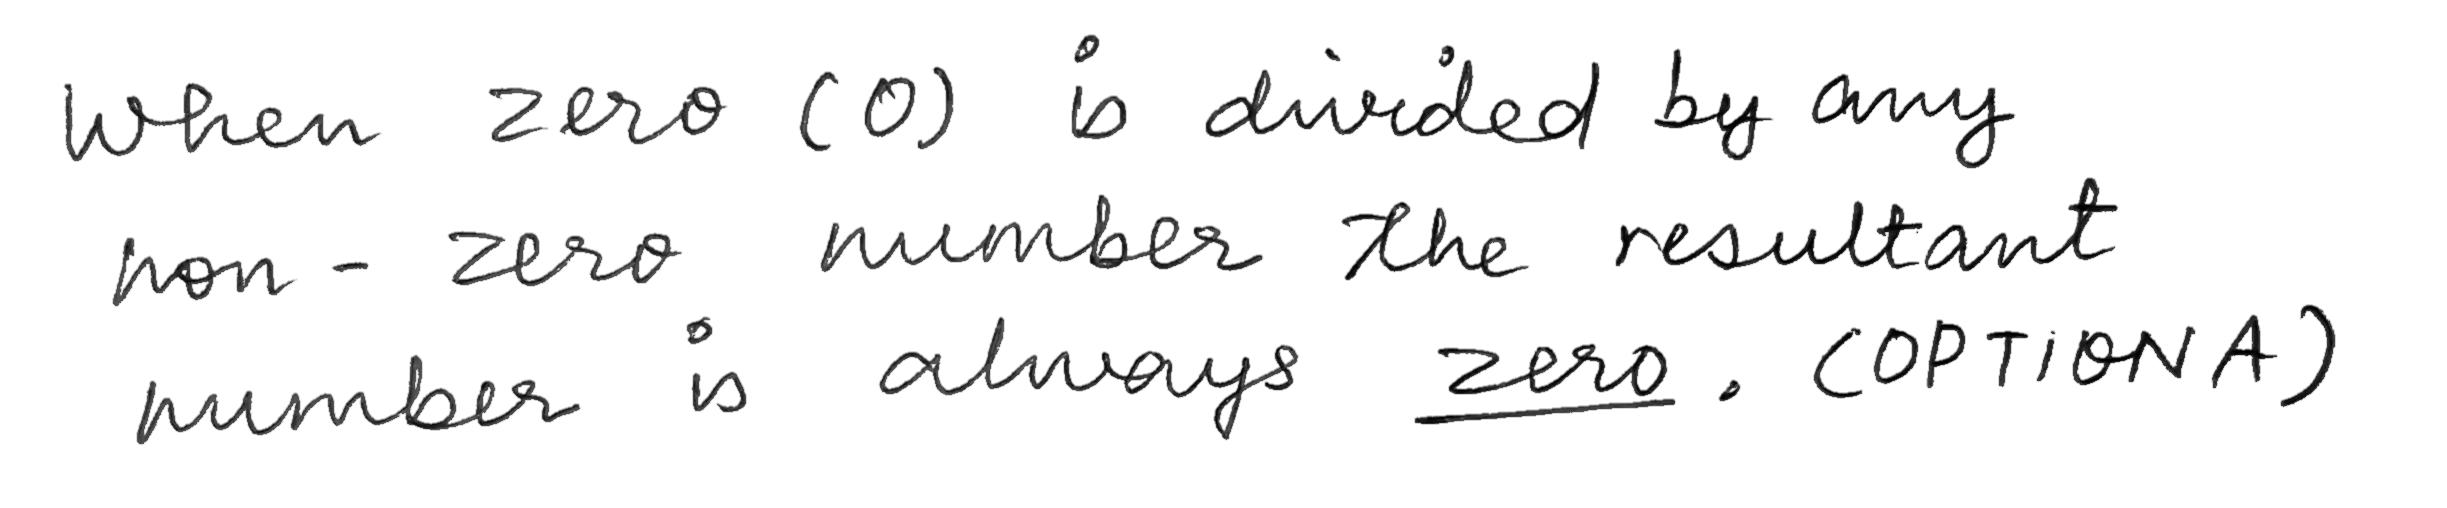 When zero (0) is divided by any
non - zero number the resultant
number is always zero. (OPTION A)